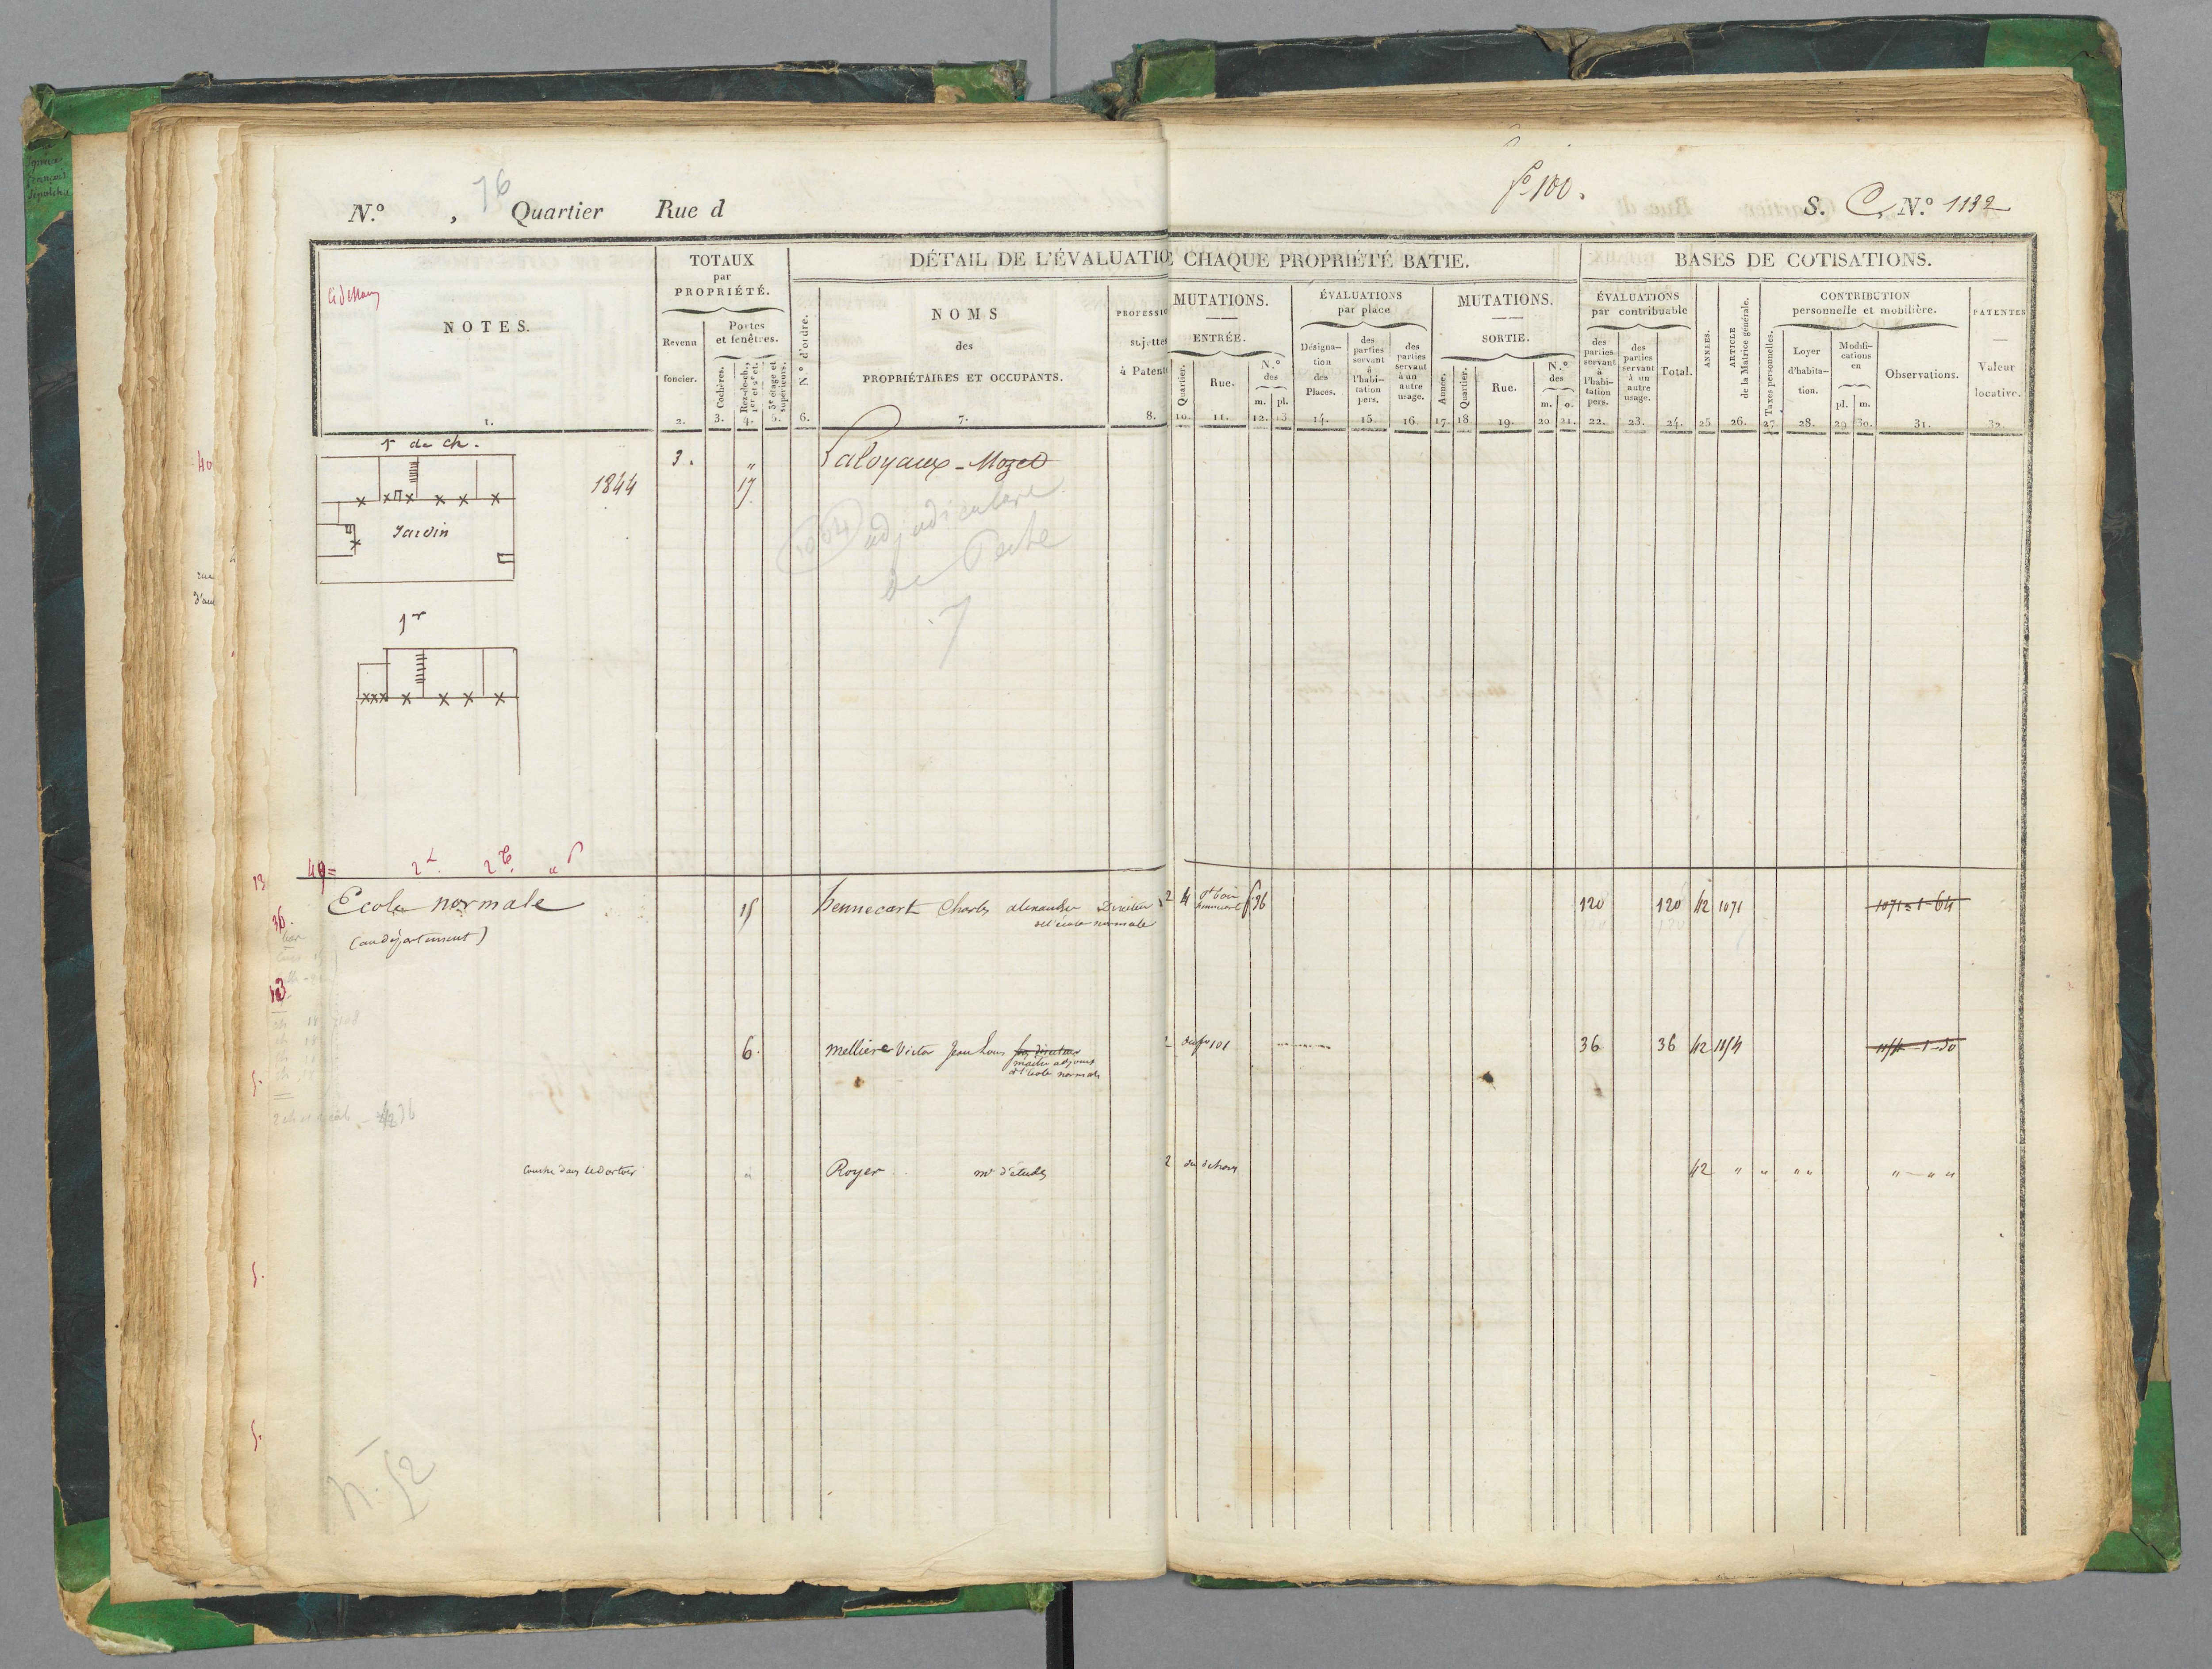 N.º , 76 Quartier Rue d
fº 100.
S. C, N.º 1132
TOTAUX
par
PROPRIÉTÉ.
DÉTAIL DE L'ÉVALUATIO CHAQUE PROPRIÉTÉ BATIE.
BASES DE COTISATIONS.
NOTES.
1.
Revenu
foncier.
2.
Portes
et fenêtres.
Cochères.
3.
Rez-de-ch.,
1er et 2e ét.
4.
3e étage et
supérieurs.
5.
N.º d'ordre.
6.
NOMS
des
PROPRIÉTAIRES ET OCCUPANTS.
7.
PROFESSIO
sujettes
à Patente
8.
MUTATIONS.
ENTRÉE.
Quartier.
10.
Rue.
11.
N.º
des
m. pl.
12. 13.
ÉVALUATIONS
par place
Désigna-
tion
des
Places.
14.
des
parties
servant
à
l'habi-
tation
pers.
15.
des
parties
servant
à un
autre
usage.
16.
MUTATIONS.
SORTIE.
Année.
17.
Quartier.
18.
Rue.
19.
N.º
des
m. o.
20. 21.
ÉVALUATIONS
par contribuable
des
parties
servant
à
l'habi-
tation
pers.
22.
des
parties
servant
à un
autre
usage.
23.
Total.
24.
ANNÉES.
25.
ARTICLE
de la Matrice générale.
26.
CONTRIBUTION
personnelle et mobilière.
Taxes personnelles.
27.
Loyer
d'habita-
tion.
28.
Modifi-
cations
en
pl. m.
29. 30.
Observations.
31.
PATENTES
Valeur
locative.
32.
r de ch.
Jardin
1844
3. "
17
Laloyaux - Mozet
adjudicataire
de Poste
7
1er
40
49=
13
Ecole normale
(au département)
15
hennecart Charles alexandre Directeur
de l'école normale
2 4
hennecart f 96
120 120 42 1071
1071=1-64
36.
13
6.
Melliere Victor Jean Louis
maitre adjoint
de l'école normale
2 du fº 101
36 36 42 1154
1154-1-50
36
Couche dans le dortoir
"
Royer mᵉ d'études
2 du dehors
42 " " " "
" — " "
5.
5.
5.
52